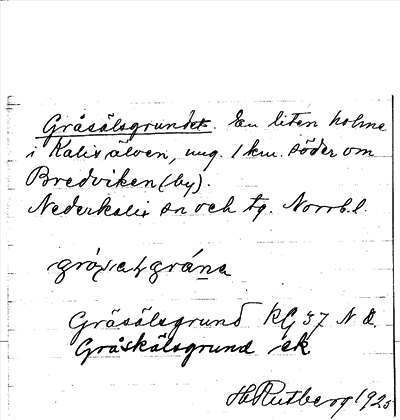 Gråsälsgrundet. En liten holme
i Kalix älven, ung. 1 km. söder om
Bredviken (by).
Nederkalix sn och tg. Norrb. l.
Gråsälsgrund KG 37 N Ö.
Gråskälsgrund ek
Hb Rutberg 1925